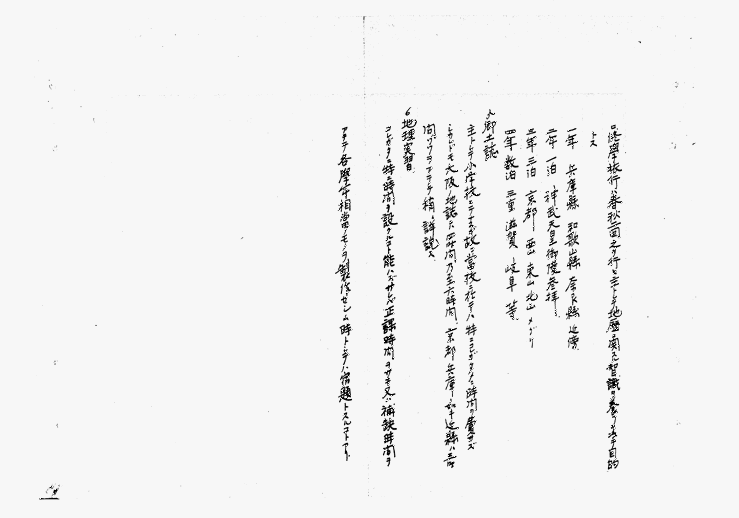 修學旅行ハ春秋二回之ヲ行ヒ主トシテ地歴ニ関スル智識ヲ養フヲ以テ目的
トス
一年 兵庫縣 和歌山縣 奈良縣 近傍
二年 一泊 神武天皇御陵参拝
三年 三泊 京都 西山 東山 北山メグリ
四年 数泊 三重 滋賀 岐阜 等
郷土誌
主トシテ小学校ニテナスガ故ニ當校ニ於テハ特ニコレガタメニ時間ヲ置カズ
シカレドモ大阪ノ地誌ニハ四時間乃至六時間 京都 兵庫 近縣ハ三時
間ヅツヲアテテ稍々詳説ス
6 地理実習
コレガタメ特ニ時間ヲ設クルコト能ハザレバ正課時間ヲサキ又ハ補缺時間ヲ
アテテ各學年相當ノモノヲ製作セシム 時トシテハ宿題トスルコトアリ